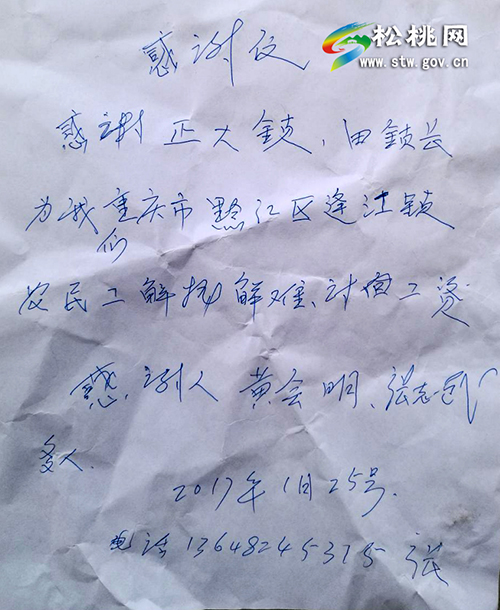 松桃网
www.stw.gov.cn
感谢仪
感谢正大鎮、田鎮长
为我们重庆市黔江区逢江鎮
农民工解扰解难、讨回工资
感谢人 黄会明、张志武
多人.
2017年1月25号.
电话13648245375 张